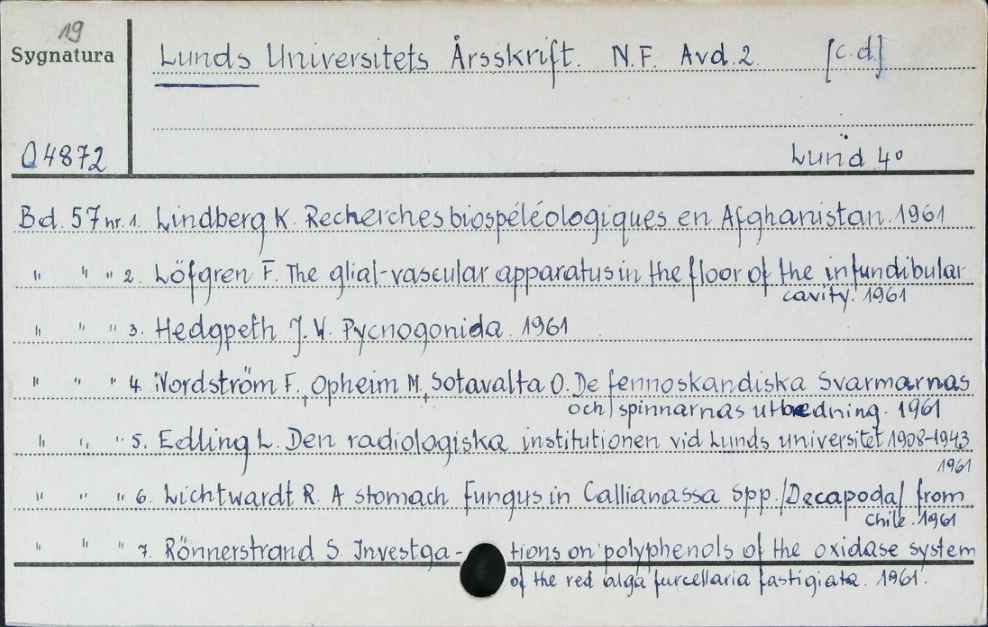 19
Sygnatura
Lunds Universitets Årsskrift. N.F. Avd. 2. [c.d.]
Q4872
Lund 4°
Bd. 57 nr. 1. Lindberg K. Recherches biospéléologiques en Afghanistan. 1961
" " " 2. Löfgren F. The glial-vascular apparatus in the floor of the infundibular
cavity. 1961
" " " 3. Hedgpeth J. W. Pycnogonida. 1961
" " " 4. Nordström F., Opheim M., Sotavalta O. De fennoskandiska svarmarnas
och spinnarnas utbredning. 1961
" " " 5. Edling L. Den radiologiska institutionen vid Lunds universitet 1908-1943
1961
" " " 6. Lichtwardt R. A stomach fungus in Callianassa spp. /Decapoda/ from
Chile. 1961
" " " 7. Rönnerstrand S. Investga- tions on polyphenols of the oxidase system
of the red alga furcellaria fastigiata. 1961.